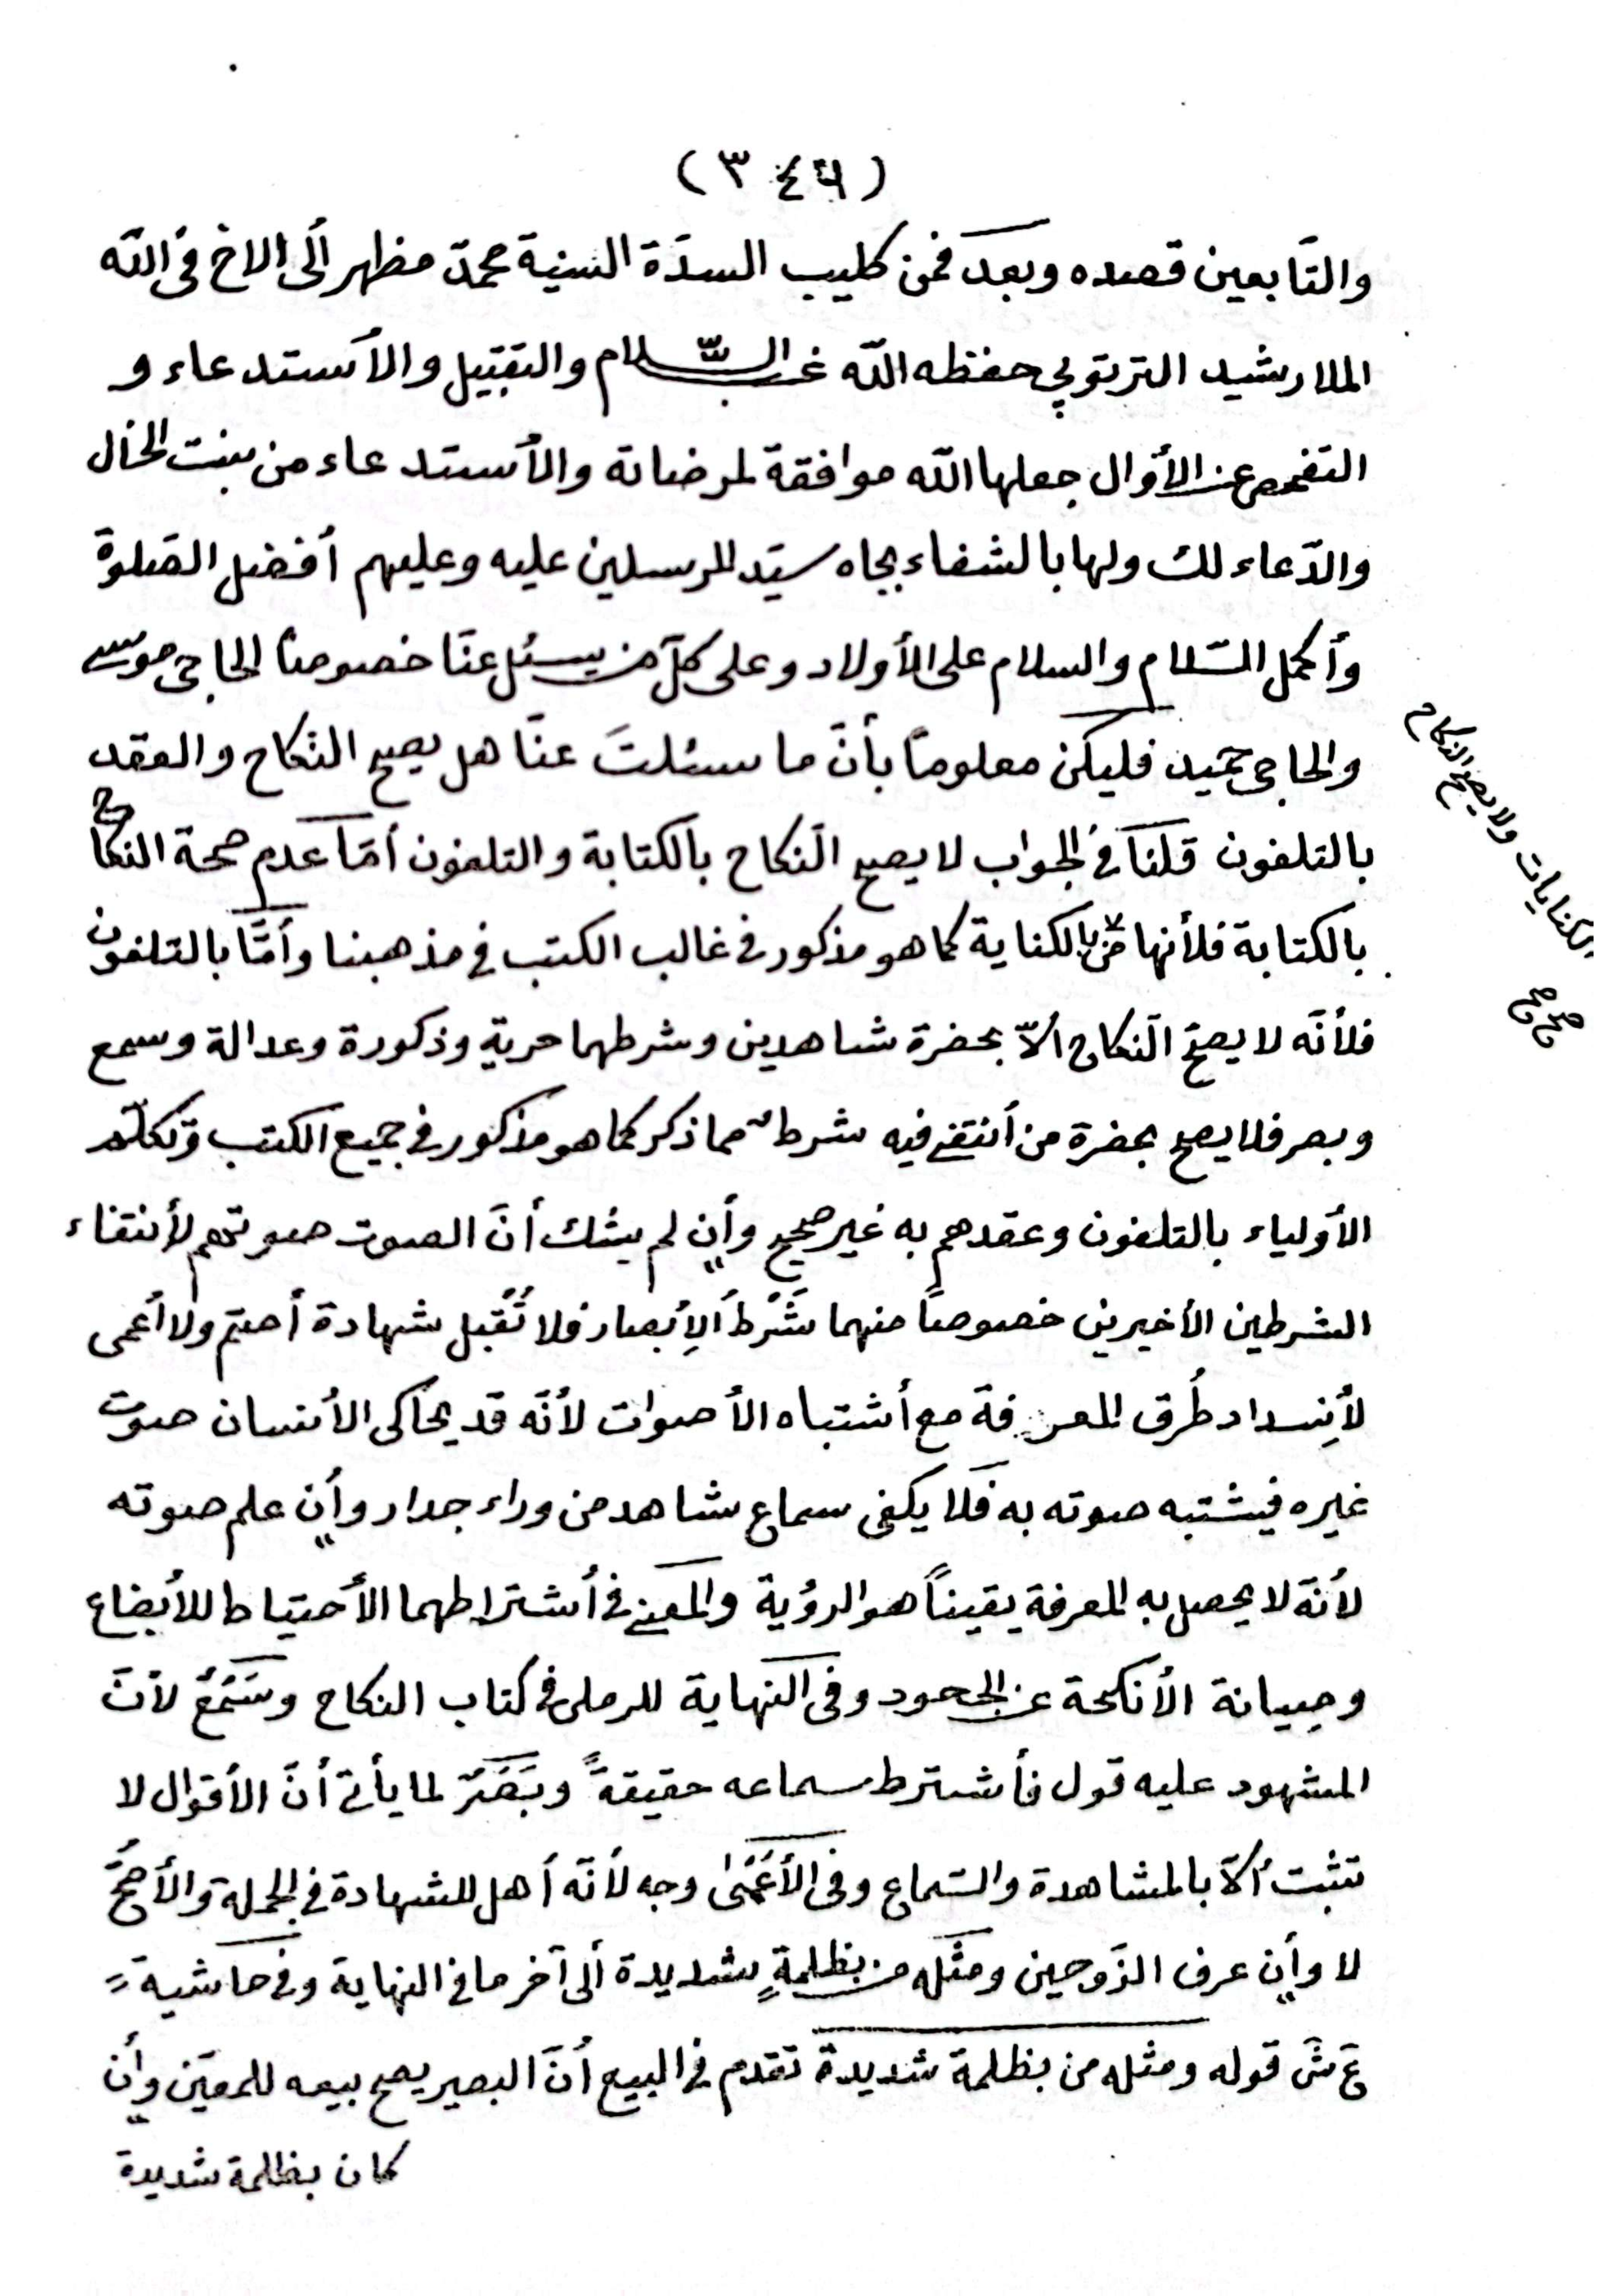 (٣٤٦)
والتَّابعين قصده وبعد فمن كليب السدّة السنية محمدّ مظهر ألى الاخ فى اللّه
الملا رشيد التربتوبي حفظه اللّه غب السّلام والتقبيل والأستدعاء و
التفحص عن الأوال جعلها اللّه موافقة لمرضاته والأستدعاء من بنت الخال
والدّعاء لك ولها بالشفاء بجاه سيّد المرسلين عليه وعليهم أفضل الصّلوة
وأكمل السّلام والسلام على الأولاد وعلى كلّ من يسئل عنّا خصوصاً الحاجى موسى
والحاجى حميد فليكن معلوماً بأنّ ما سئلتَ عنّا هل يصح النّكاح والعقد
بالتلفون قلنا فى الجواب لا يصح النّكاح بالكتابة والتلفون أمّا عدم صحة النكاح
بالكتابة فلأنها من الكناية كما هو مذكور فى غالب الكتب في مذهبنا وأمّا بالتلفون
فلأنّه لا يصحّ النّكاح ألّا بحضرة شاهدين وشرطهما حرية وذكورة وعدالة وسمع
وبصر فلا يصح بحضرة من أنتفى فيه شرطٌ مما ذكر كما هو مذكور فى جميع الكتب وتكلّم
الأولياء بالتلفون وعقدهم به غير صحيح وأن لم يشك أنّ الصوت صوتهم لأنتفاء
الشرطين الأخيرين خصوصاً منهما شَرْطُ الأِبصار فلا تُقبل شهادة أصمّ ولا أعمى
لأِنسداد طُرق المعرفة مع أشتباه الأصوات لأنّه قد يحاكى الأنسان صوت
غيره فيشتبه صوته به فلا يكفى سماع شاهد من وراء جدار وأن علم صوته
لأنّه لا يحصل به المعرفة يقيناً هو الرؤية والمعنى فى أشتراطهما الأحتياط للأبضاع
وصِيانة الأنكحة عن الجحود وفى النّهاية للرملى فى كتاب النكاح وسَمْعٌ لأنّ
المشهود عليه قول فأشترط سماعه حقيقةً وبَصَرٌ لما يأتى أنّ الأقوال لا
تثبت ألّا بالمشاهدة والسّماع وفى الأَعْمىٰ وجه لأنّه أهل للشهادة فى الجملة والأصحُّ
لا وأن عرف الزّوجين ومثله من بظلمةٍ شديدة ألى آخر ما فى النهاية وفى حاشية
ع ش قوله ومثله من بظلمة شديدة تقدم فى البيع أنّ البصير يصح بيعه للمعيّن وأن
كان بظلمة شديدة
الكنايات ولا يصح النكاح
صح صح